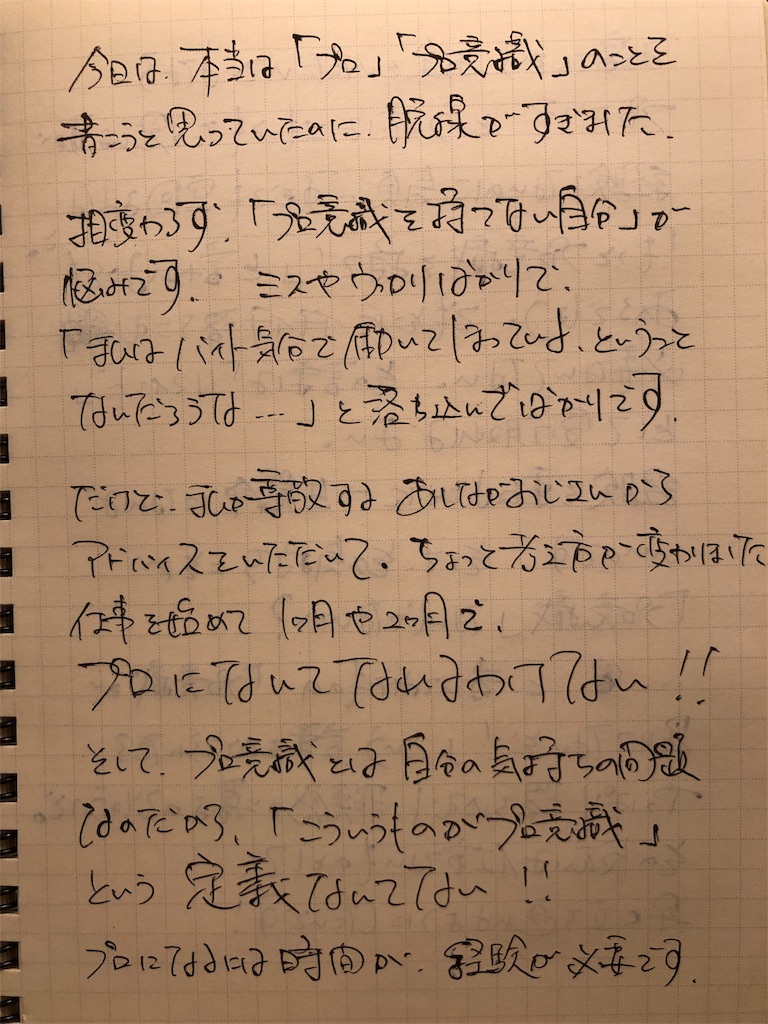 今日は、本当は「プロ」「プロ意識」のことを
書こうと思っていたのに、脱線がすぎました。
相変わらず、「プロ意識を持てない自分」が
悩みです。ミスやウッカリばかりで、
「私はバイト気分で働いてしまっている、というって
ないだろうな…」と落ち込んでばかりです。
だけど、私が尊敬する あしながおじさんから
アドバイスをいただいて。ちょっと考え方が変わりました
仕事を始めて 1ヶ月や2ヶ月で、
プロになんてなれるわけない!!
そして、プロ意識とは自分の気持ちの問題
なのだから、「こういうものがプロ意識」
という 定義なんてない!!
プロになるには時間が、経験が必要です。